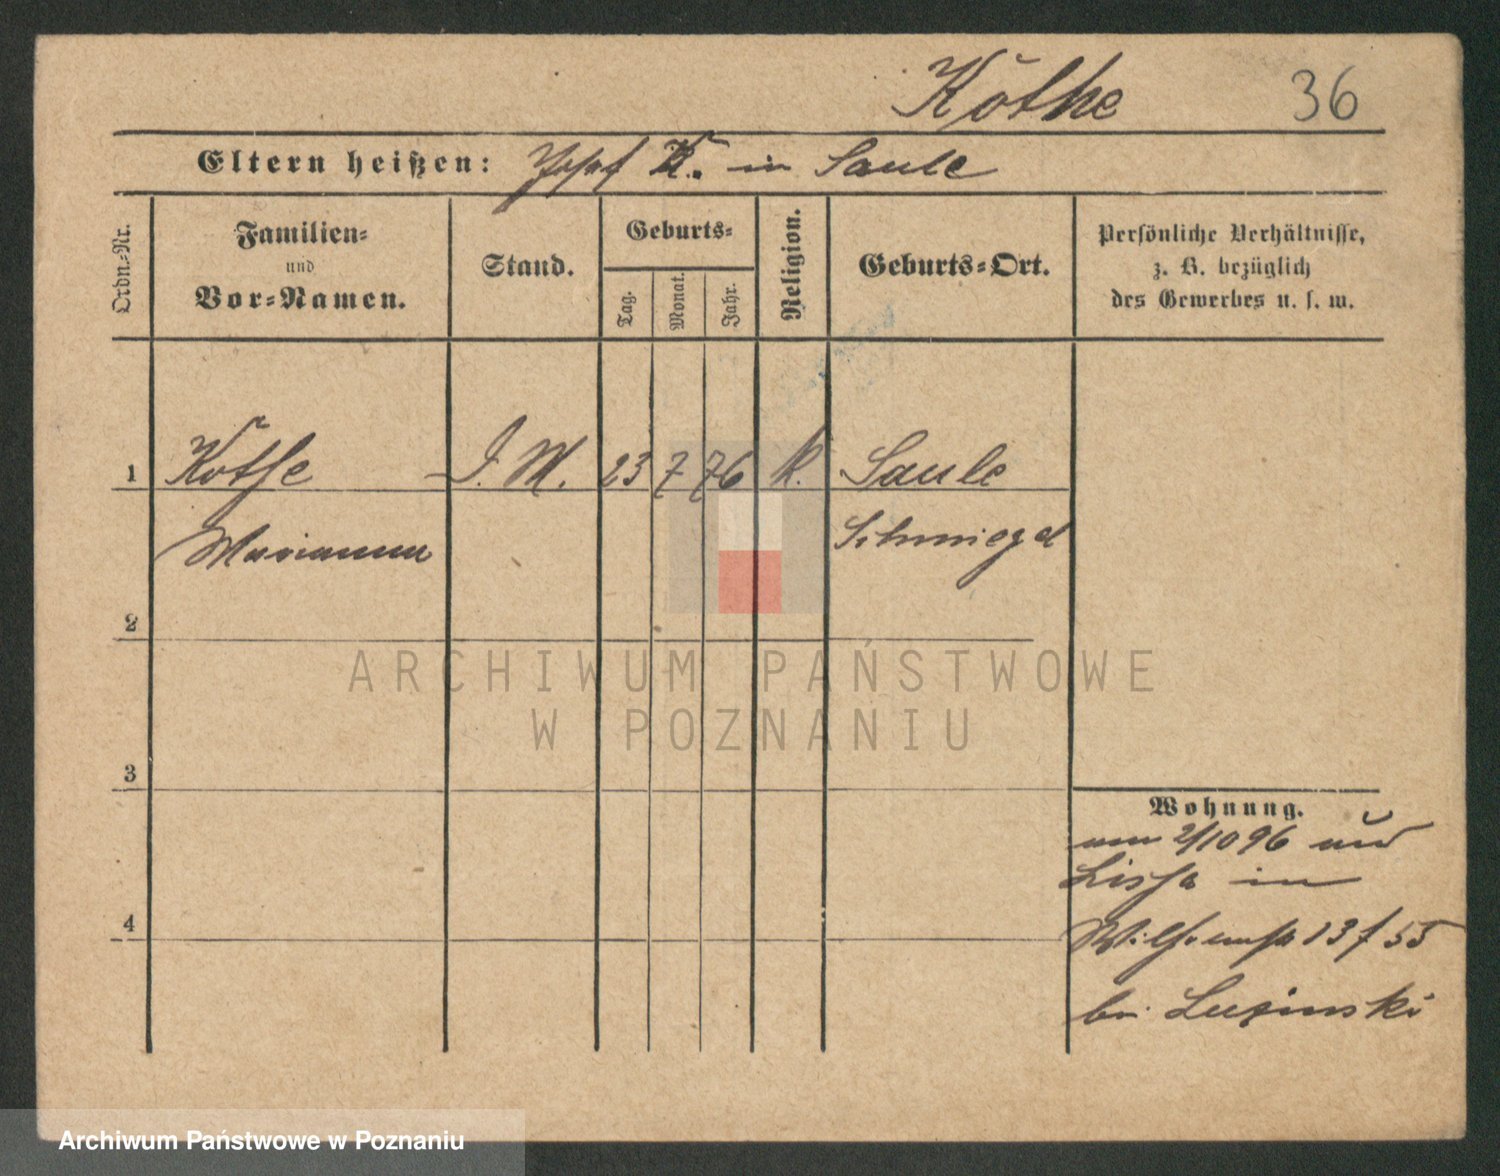 Köthe 36
Eltern heißen: Josef K. in Saule
Ordn.-Nr.
Familien-
und
Vor-Namen.
Stand.
Geburts-
Tag.
Monat.
Jahr.
Religion.
Geburts-Ort.
Persönliche Verhältnisse,
z. B. bezüglich
des Gewerbes u. s. w.
1 Köthe D. M. 23 7 76 k. Saule
Marianna Schmiegel
2
3
4
Wohnung.
vom 2/10 96 aus
Lissa in
13 55
bei
ARCHIWUM PAŃSTWOWE
W POZNANIU
Archiwum Państwowe w Poznaniu